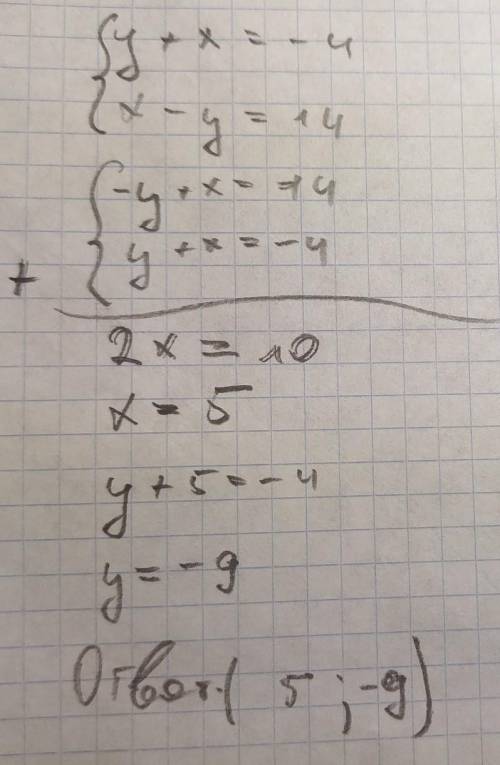 { y + x = - 4
x - y = 14
{ -y + x = 14
y + x = - 4
+
2x = 10
x = 5
y + 5 = - 4
y = - 9
Ответ. ( 5 ; -9 )